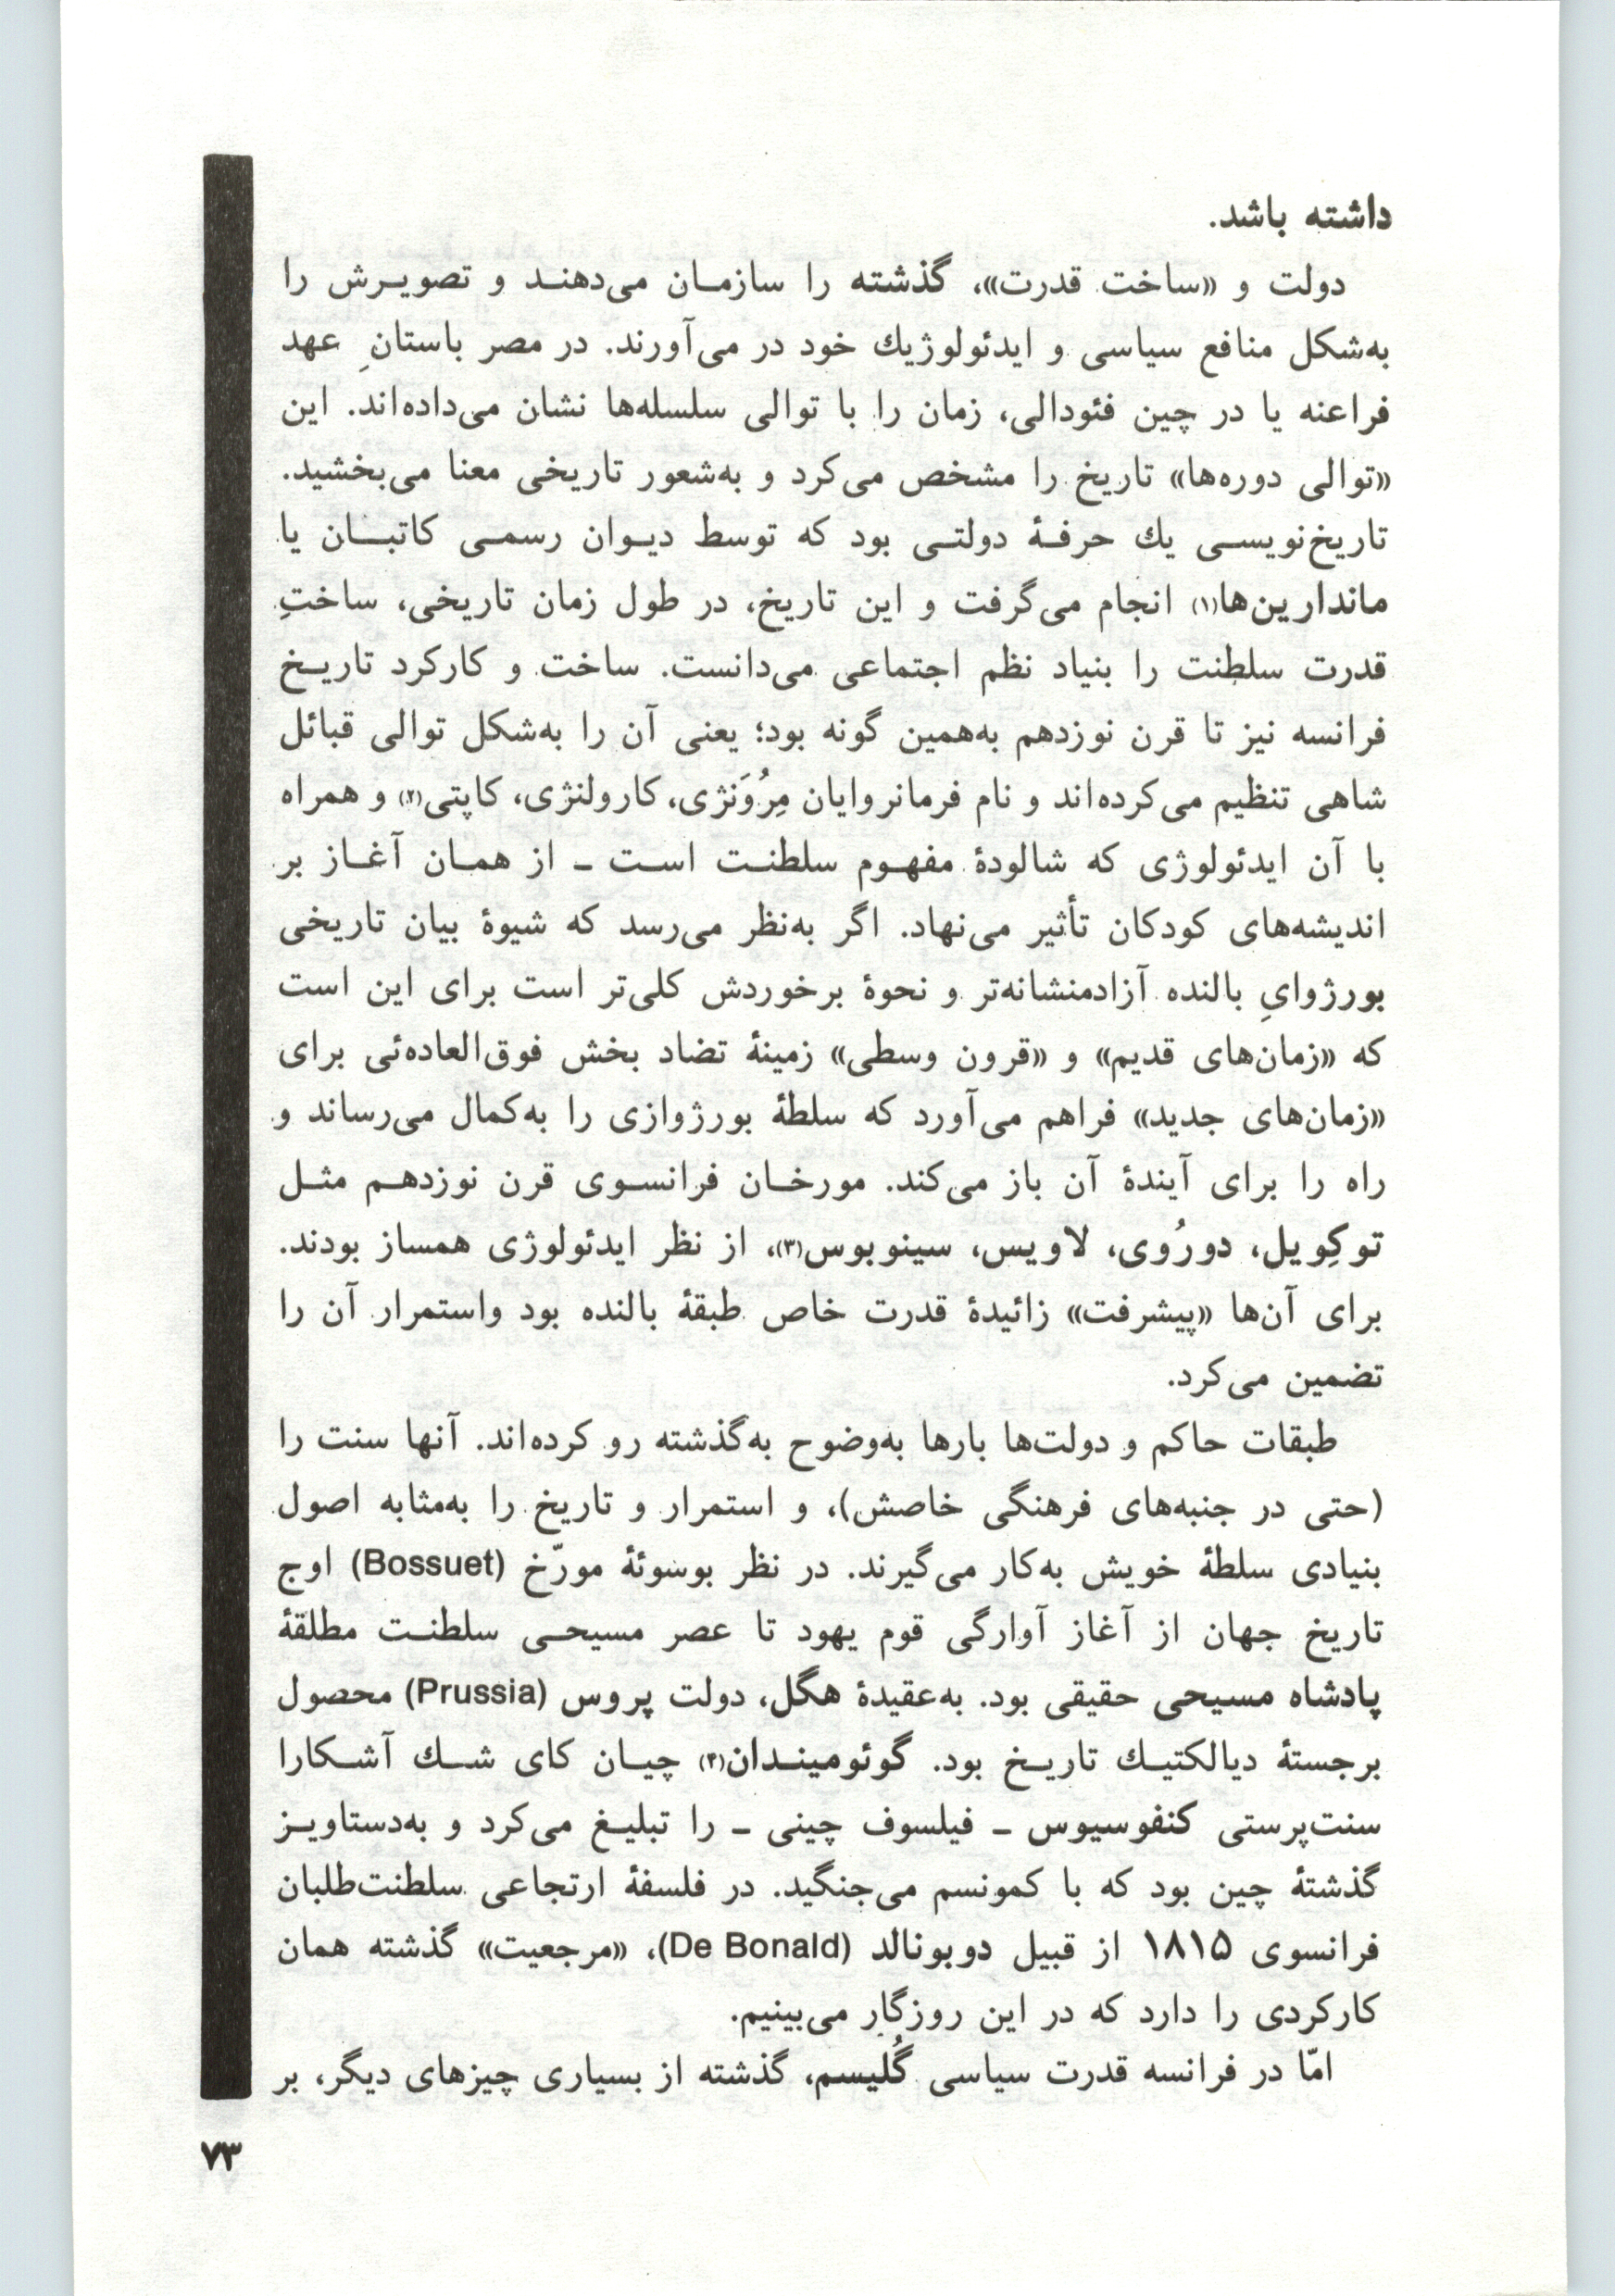 داشته باشد.
دولت و «ساخت قدرت»، گذشته را سازمـان می‌دهنـد و تصویـرش را
به‌شکل منافع سیاسی و ایدئولوژیك خود در می‌آورند. در مصر باستانِ عهد
فراعنه یا در چین فئودالی، زمان را با توالی سلسله‌ها نشان می‌داده‌اند. این
«توالی دوره‌ها» تاریخ را مشخص می‌کرد و به‌شعور تاریخی معنا می‌بخشید.
تاریخ‌نویسـی یك حرفـهٔ دولتـی بود که توسط دیـوان رسمـی کاتبـان یا
ماندارین‌ها(۱) انجام می‌گرفت و این تاریخ، در طول زمان تاریخی، ساختِ
قدرت سلطنت را بنیاد نظم اجتماعی می‌دانست. ساخت و کارکرد تاریـخ
فرانسه نیز تا قرن نوزدهم به‌همین گونه بود؛ یعنی آن را به‌شکل توالی قبائل
شاهی تنظیم می‌کرده‌اند و نام فرمانروایان مِرُوَنژی، کارولنژی، کاپتی(۲) و همراه
با آن ایدئولوژی که شالودهٔ مفهـوم سلطنـت اسـت ـ از همـان آغـاز بر
اندیشه‌های کودکان تأثیر می‌نهاد. اگر به‌نظر می‌رسد که شیوهٔ بیان تاریخی
بورژوایِ بالنده آزادمنشانه‌تر و نحوهٔ برخوردش کلی‌تر است برای این است
که «زمان‌های قدیم» و «قرون وسطی» زمینهٔ تضاد بخش فوق‌العاده‌ئی برای
«زمان‌های جدید» فراهم می‌آورد که سلطهٔ بورژوازی را به‌کمال می‌رساند و
راه را برای آیندهٔ آن باز می‌کند. مورخـان فرانسـوی قرن نوزدهـم مثـل
توکِویل، دورُوی، لاویس، سینوبوس(۳)، از نظر ایدئولوژی همساز بودند.
برای آن‌ها «پیشرفت» زائیدهٔ قدرت خاص طبقهٔ بالنده بود واستمرار آن را
تضمین می‌کرد.
طبقات حاکم و دولت‌ها بارها به‌وضوح به‌گذشته رو کرده‌اند. آنها سنت را
(حتی در جنبه‌های فرهنگی خاصش)، و استمرار و تاریخ را به‌مثابه اصول
بنیادی سلطهٔ خویش به‌کار می‌گیرند. در نظر بوسوئهٔ مورّخ (Bossuet) اوج
تاریخ جهان از آغاز آوارگی قوم یهود تا عصر مسیحـی سلطنـت مطلقهٔ
پادشاه مسیحی حقیقی بود. به‌عقیدهٔ هگل، دولت پروس (Prussia) محصول
برجستهٔ دیالکتیـك تاریـخ بود. گوئومینـدان(۴) چیـان کای شـك آشـکارا
سنت‌پرستی کنفوسیوس ـ فیلسوف چینی ـ را تبلیـغ می‌کرد و به‌دستاویـز
گذشتهٔ چین بود که با کمونسم می‌جنگید. در فلسفهٔ ارتجاعی سلطنت‌طلبان
فرانسوی ۱۸۱۵ از قبیل دوبونالد (De Bonald)، «مرجعیت» گذشته همان
کارکردی را دارد که در این روزگار می‌بینیم.
امّا در فرانسه قدرت سیاسی گُلیسم، گذشته از بسیاری چیزهای دیگر، بر
۷۳